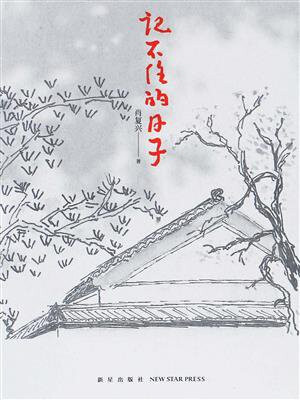 记不住的日子
肖复兴——著
新星出版社 NEW STAR PRESS